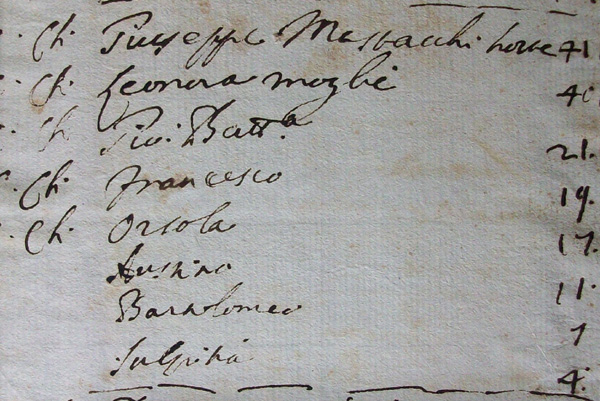 Ch. Giuseppe Mustacchi horte 41
Ch. Leonora moglie 40
Ch Gio: Batt.a 21.
Ch. Francesco 19.
Ch. Orsola 17.
11.
Bartolomeo 7
Sulpitia 4.